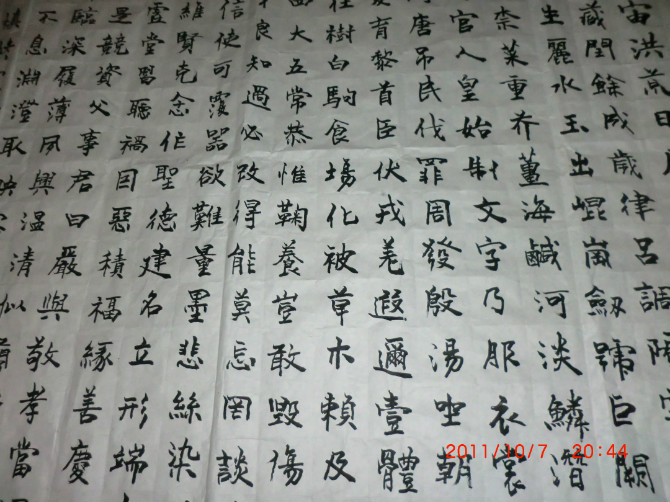 宙洪荒日月
藏閏餘成歲律呂調陽
生麗水玉出崐崗劒號巨闕
柰菜重芥薑海鹹河淡鱗潛
官人皇始制文字乃服衣裳
唐吊民伐罪周發殷湯坐朝
育黎首臣伏戎羌遐邇壹體
在樹白駒食場化被草木賴及
四大五常恭惟鞠養豈敢毀傷
良知過必改得能莫忘罔談
信使可覆器欲難量墨悲絲染
維賢克念作聖德建名立形端
虛堂習聽禍因惡積福緣善慶
是競資父事君曰嚴與敬孝當
臨深履薄夙興溫清似
不息淵澄取映
2011/10/7 20:44